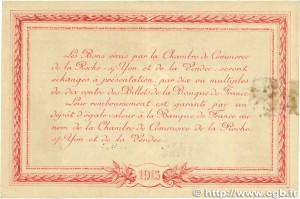 Les Bons émis par la Chambre de Commerce
de la Roche-s/-Yon et de la Vendée, seront
échangés à présentation, par dix ou multiples
de dix contre des Billets de la Banque de France
Leur remboursement est garanti par un
dépôt d'égale valeur à la Banque de France au
nom de la Chambre de Commerce de la Roche
s/-Yon et de la Vendée
1915
© www.cgb.fr